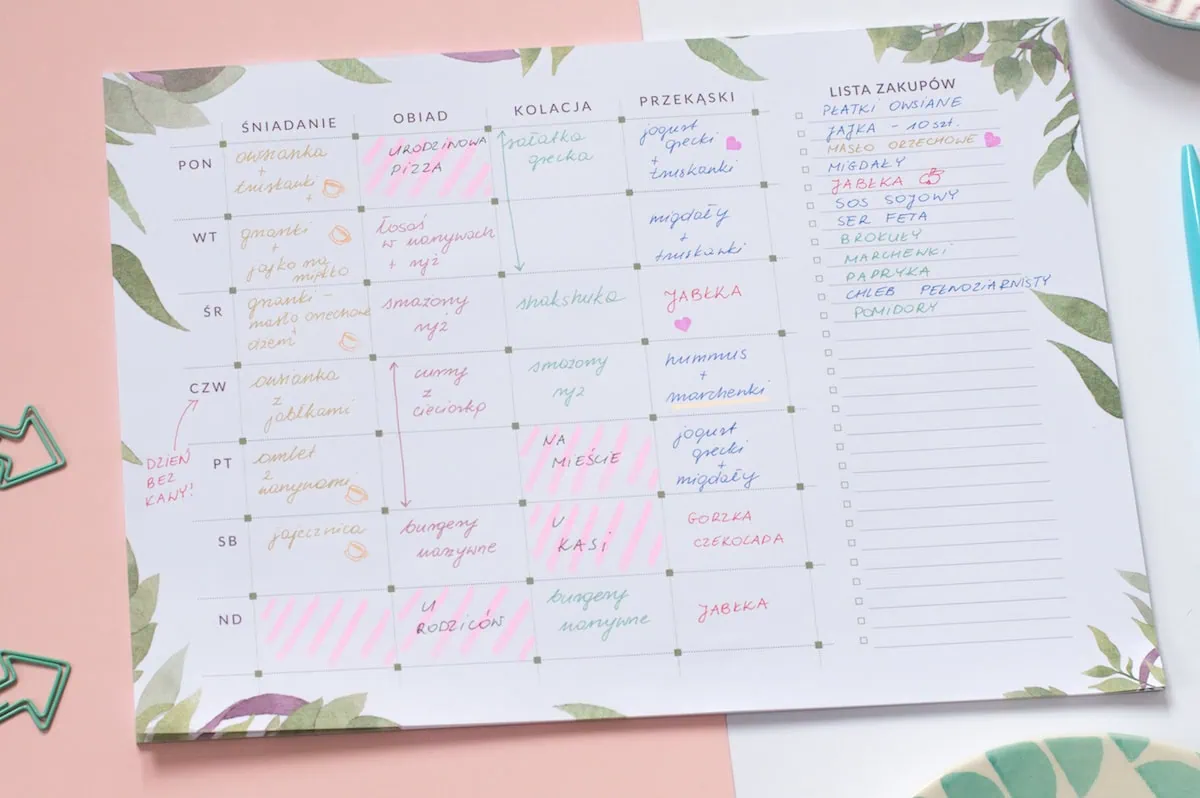 ŚNIADANIE OBIAD KOLACJA PRZEKĄSKI
PON
owsianka
+
truskawki
+
URODZINOWA
PIZZA
sałatka
grecka
jogurt
grecki
+
truskawki
WT
grzanki
+
jajko na
miękko
łosoś
w warzywach
+ ryż
migdały
+
truskawki
ŚR
grzanki –
masło orzechowe
+
dżem
smażony
ryż
shakshuka
JABŁKA
CZW
owsianka
z
jabłkami
curry
z
cieciorką
smażony
ryż
hummus
+
marchewki
DZIEŃ
BEZ
KAWY!
PT
omlet
z
warzywami
NA
MIEŚCIE
jogurt
grecki
+
migdały
SB
jajecznica
burgery
warzywne
U
KASI
GORZKA
CZEKOLADA
ND
U
RODZICÓW
burgery
warzywne
JABŁKA
LISTA ZAKUPÓW
PŁATKI OWSIANE
JAJKA – 10 szt.
MASŁO ORZECHOWE
MIGDAŁY
JABŁKA
SOS SOJOWY
SER FETA
BROKUŁY
MARCHEWKI
PAPRYKA
CHLEB PEŁNOZIARNISTY
POMIDORY